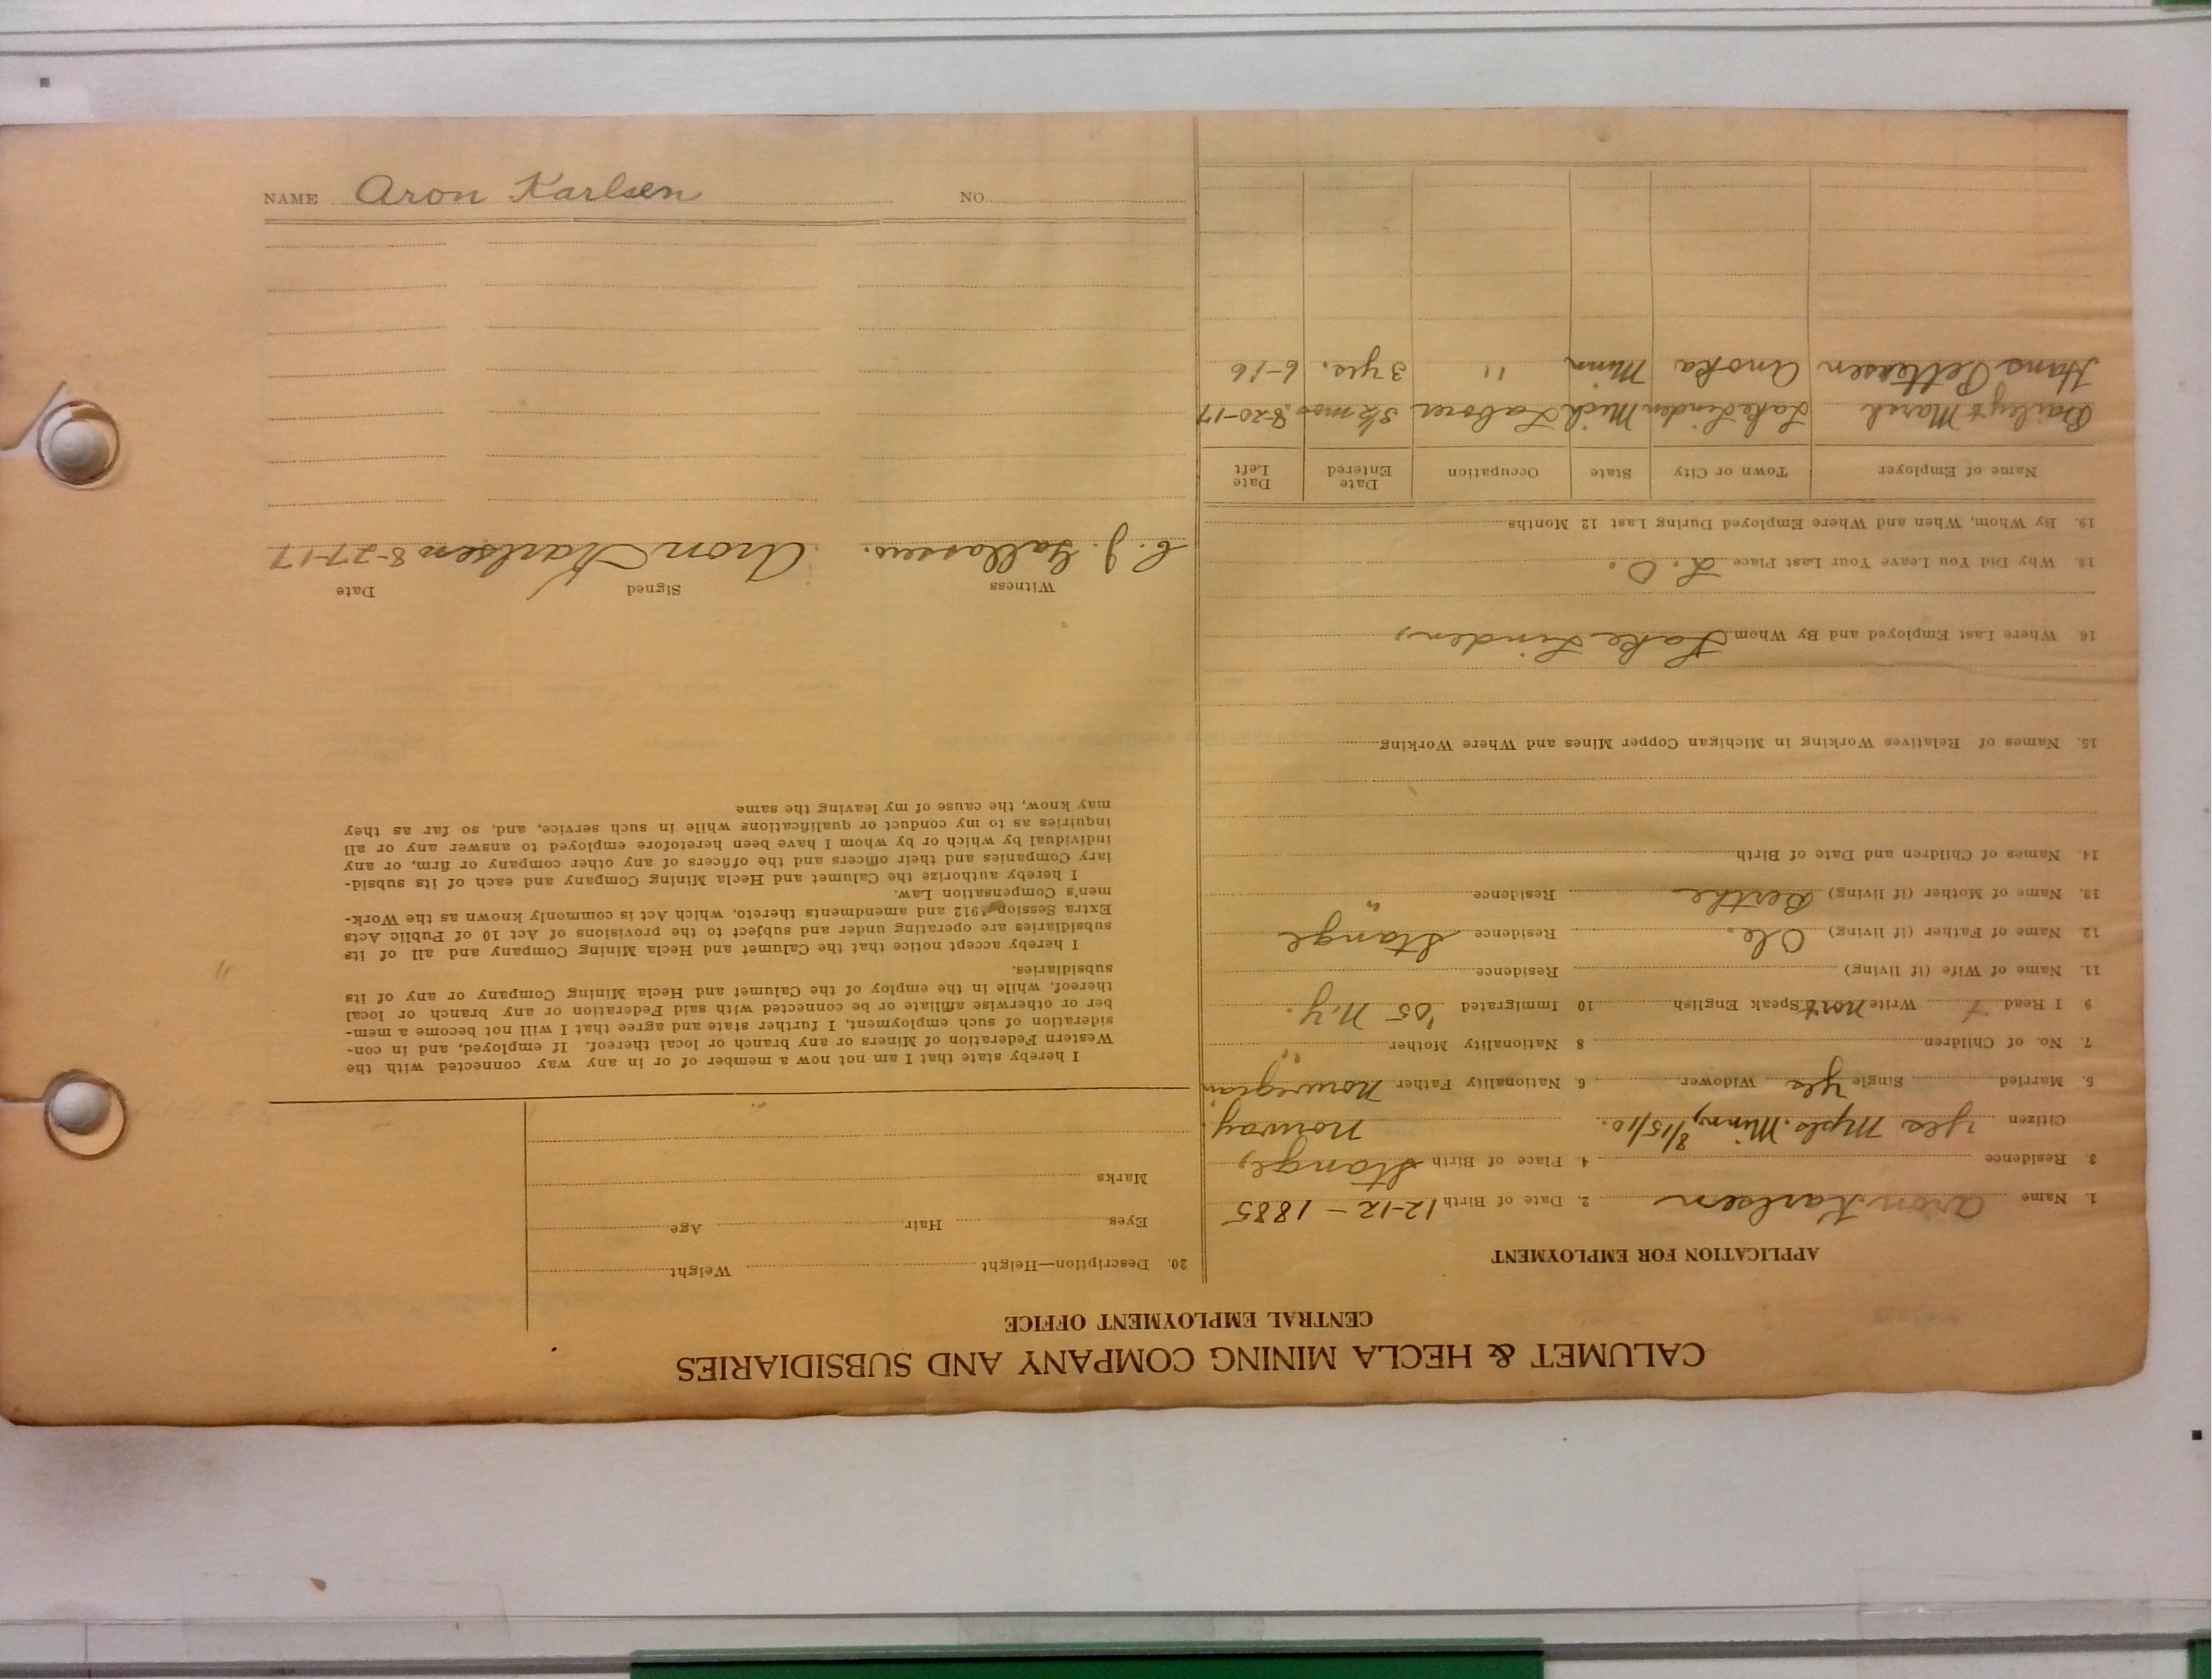 CALUMET & HECLA MINING COMPANY AND SUBSIDIARIES
CENTRAL EMPLOYMENT OFFICE
APPLICATION FOR EMPLOYMENT
1. Name Aron Karlsen 2. Date of Birth 12-12-1885
3. Residence 4. Place of Birth Stange,
Citizen Yes Mpls. Minn, 8/15/10. Norway
5. Married Single Yes Widower 6. Nationality Father Norwegian
7. No. of Children 8 Nationality Mother " "
9 I Read Write Speak English 10 Immigrated '05 N.Y.
11. Name of Wife (if living) Residence
12 Name of Father (if living) Ole. Residence Stange
13. Name of Mother (if living) Berthe Residence "
14. Names of Children and Date of Birth
15. Names of Relatives Working in Michigan Copper Mines and Where Working
16. Where Last Employed and By Whom Lake Linden,
18. Why Did You Leave Your Last Place L. O.
19. By Whom, When and Where Employed During Last 12 Months
Name of Employer Town or City State Occupation Date Entered Date Left
Lake Linden Mich Laborer 3½ mos. 8-20-17
Hans Anoka Minn " 3 yrs. 6-16
20. Description—Height Weight
Eyes Hair Age
Marks
I hereby state that I am not now a member of or in any way connected with the
Western Federation of Miners or any branch or local thereof. If employed, and in con-
sideration of such employment, I further state and agree that I will not become a mem-
ber or otherwise affiliate or be connected with said Federation or any branch or local
thereof, while in the employ of the Calumet and Hecla Mining Company or any of its
subsidiaries.
I hereby accept notice that the Calumet and Hecla Mining Company and all of its
subsidiaries are operating under and subject to the provisions of Act 10 of Public Acts
Extra Session 1912 and amendments thereto, which Act is commonly known as the Work-
men's Compensation Law.
I hereby authorize the Calumet and Hecla Mining Company and each of its subsid-
iary Companies and their officers and the officers of any other company or firm, or any
individual by which or by whom I have been heretofore employed to answer any or all
inquiries as to my conduct or qualifications while in such service, and, so far as they
may know, the cause of my leaving the same
Witness Signed Date
Aron Karlsen 8-27-17
NAME Aron Karlsen NO.